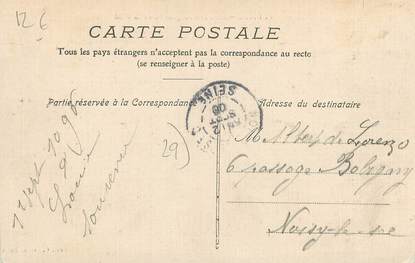 12 €
CARTE POSTALE
Tous les pays étrangers n'acceptent pas la correspondance au recto
(se renseigner à la poste)
Partie réservée à la Correspondance
Adresse du destinataire
SEINE
SEPT
06
29)
M Albert de Lorenzo
6 passage Boligny
Noisy-le-sec
7 sept
Louise
souvenir